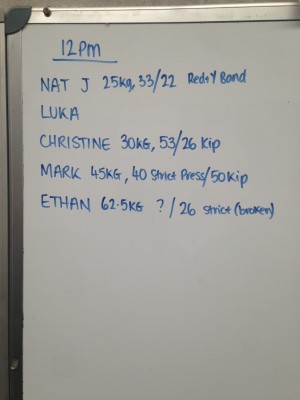 12pm
NAT J 25kg, 33/22 Red+Y Band
LUKA
CHRISTINE 30KG, 53/26 Kip
MARK 45KG, 40 Strict Press/50Kip
ETHAN 62.5KG ?/26 strict (broken)